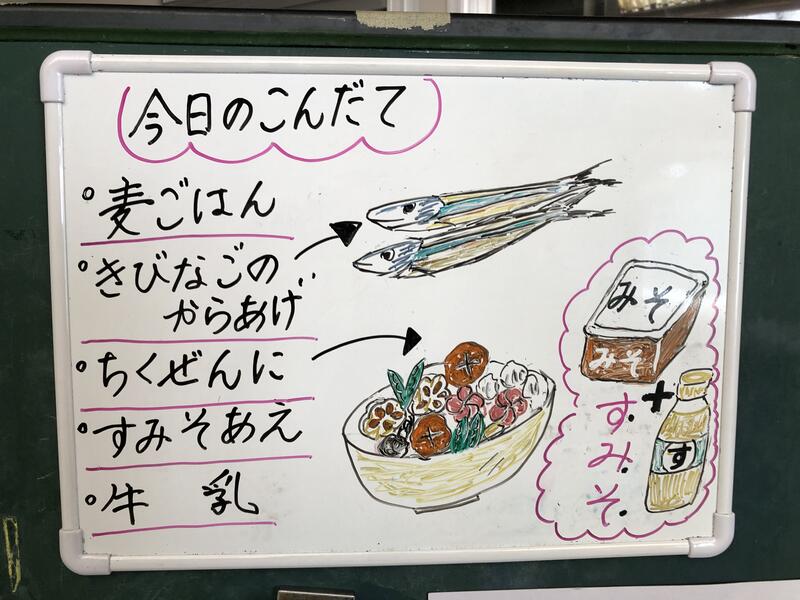 今日のこんだて
麦ごはん
きびなごの
からあげ
ちくぜんに
すみそあえ
牛 乳
みそ
みそ
+
す
すみそ